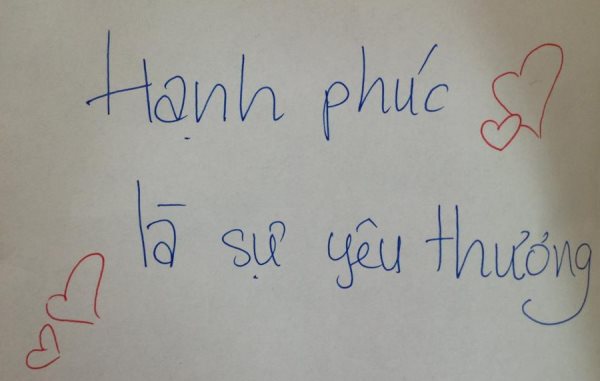 Hạnh phúc
là sự yêu thương